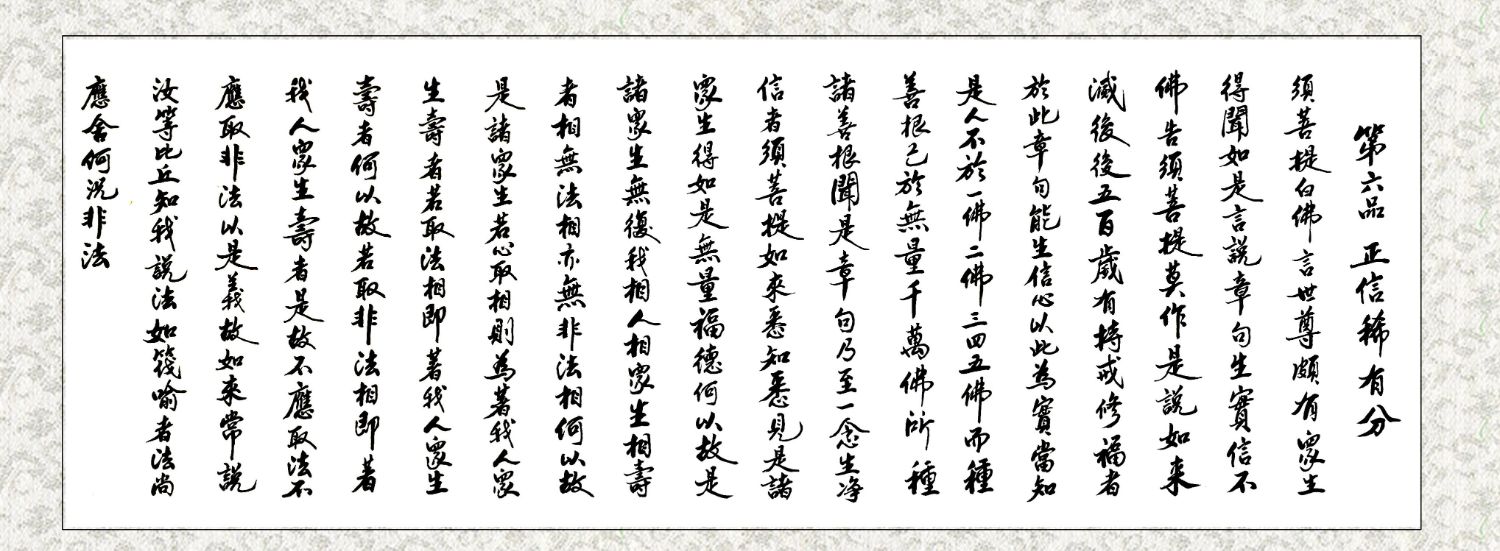 第六品 正信稀有分
須菩提白佛言世尊頗有眾生
得聞如是言說章句生實信不
佛告須菩提莫作是說如来
滅後後五百歲有持戒修福者
於此章句能生信心以此為實當知
是人不於一佛二佛三四五佛而種
善根已於無量千萬佛所種
諸善根聞是章句乃至一念生净
信者須菩提如來悉知悉見是諸
眾生得如是無量福德何以故是
諸眾生無復我相人相眾生相壽
者相無法相亦無非法相何以故
是諸眾生若心取相則為著我人眾
生壽者若取法相即著我人眾生
壽者何以故若取非法相即著
我人眾生壽者是故不應取法不
應取非法以是義故如來常說
汝等比丘知我說法如筏喻者法尚
應舍何況非法